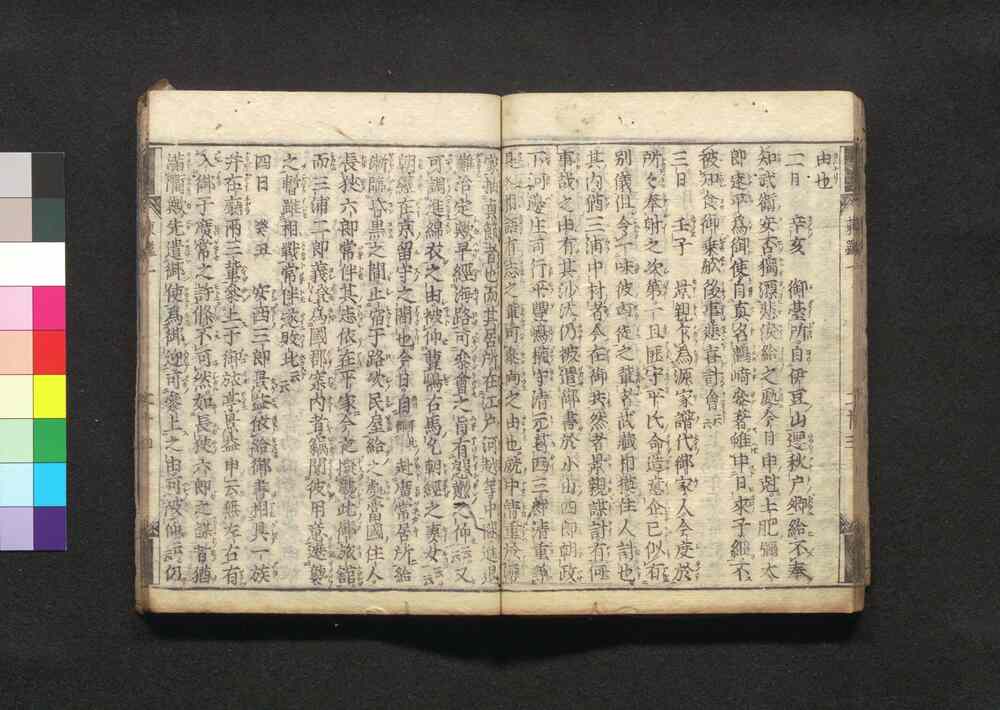 由也
二日　辛亥　御臺所自伊豆山遷秋戸郷給不奉
知武衛安否獨漂悲涙給之處今日申尅土肥彌太
郎遠平為御使自真名鶴崎參著雖申日來子細不
被知食御乘舩後事悲喜計會云云
三日　壬子　景親乍為源家譜代御家人今度於
所々奉射之次第一旦匪守平氏命造意企已似有
別儀但今一味彼凶徒之輩者武藏相摸住人計也
其内猶三浦中村者今在御共然者景親謀計有何
事哉之由有其沙汰仍被遣御書於小山四郎朝政
下河邊庄司行平豊嶋權守清元葛西三郎清重等
是各相語有志之輩可參向之由也就中清重於源
家抽貞節者也而其居所在江戸河越等中間進退
難治定歟早經海路可參會之旨有慇懃仰云云又
可調進綿衣之由被仰豊嶋右馬允朝經之妻女云云
朝經在京留守之間也今日自
御歸路黒之間止宿于路次民屋給之處當國住人
長狹六郎常伴其志依在平家今夜擬襲此御旅舘
而三浦二郎義澄為國郡案内者竊聞彼用意遮襲
之暫雖相戰常伴遂敗北云云
四日　癸丑　安西三郎景益依給御書相具一族
并在廳兩三輩參上于御旅亭景益申云無左右有
入御于廣常之許條不可然如長狹六郎之謀者猶
滿衢歟先遣御使為御迎可參上之由可被仰云云仍